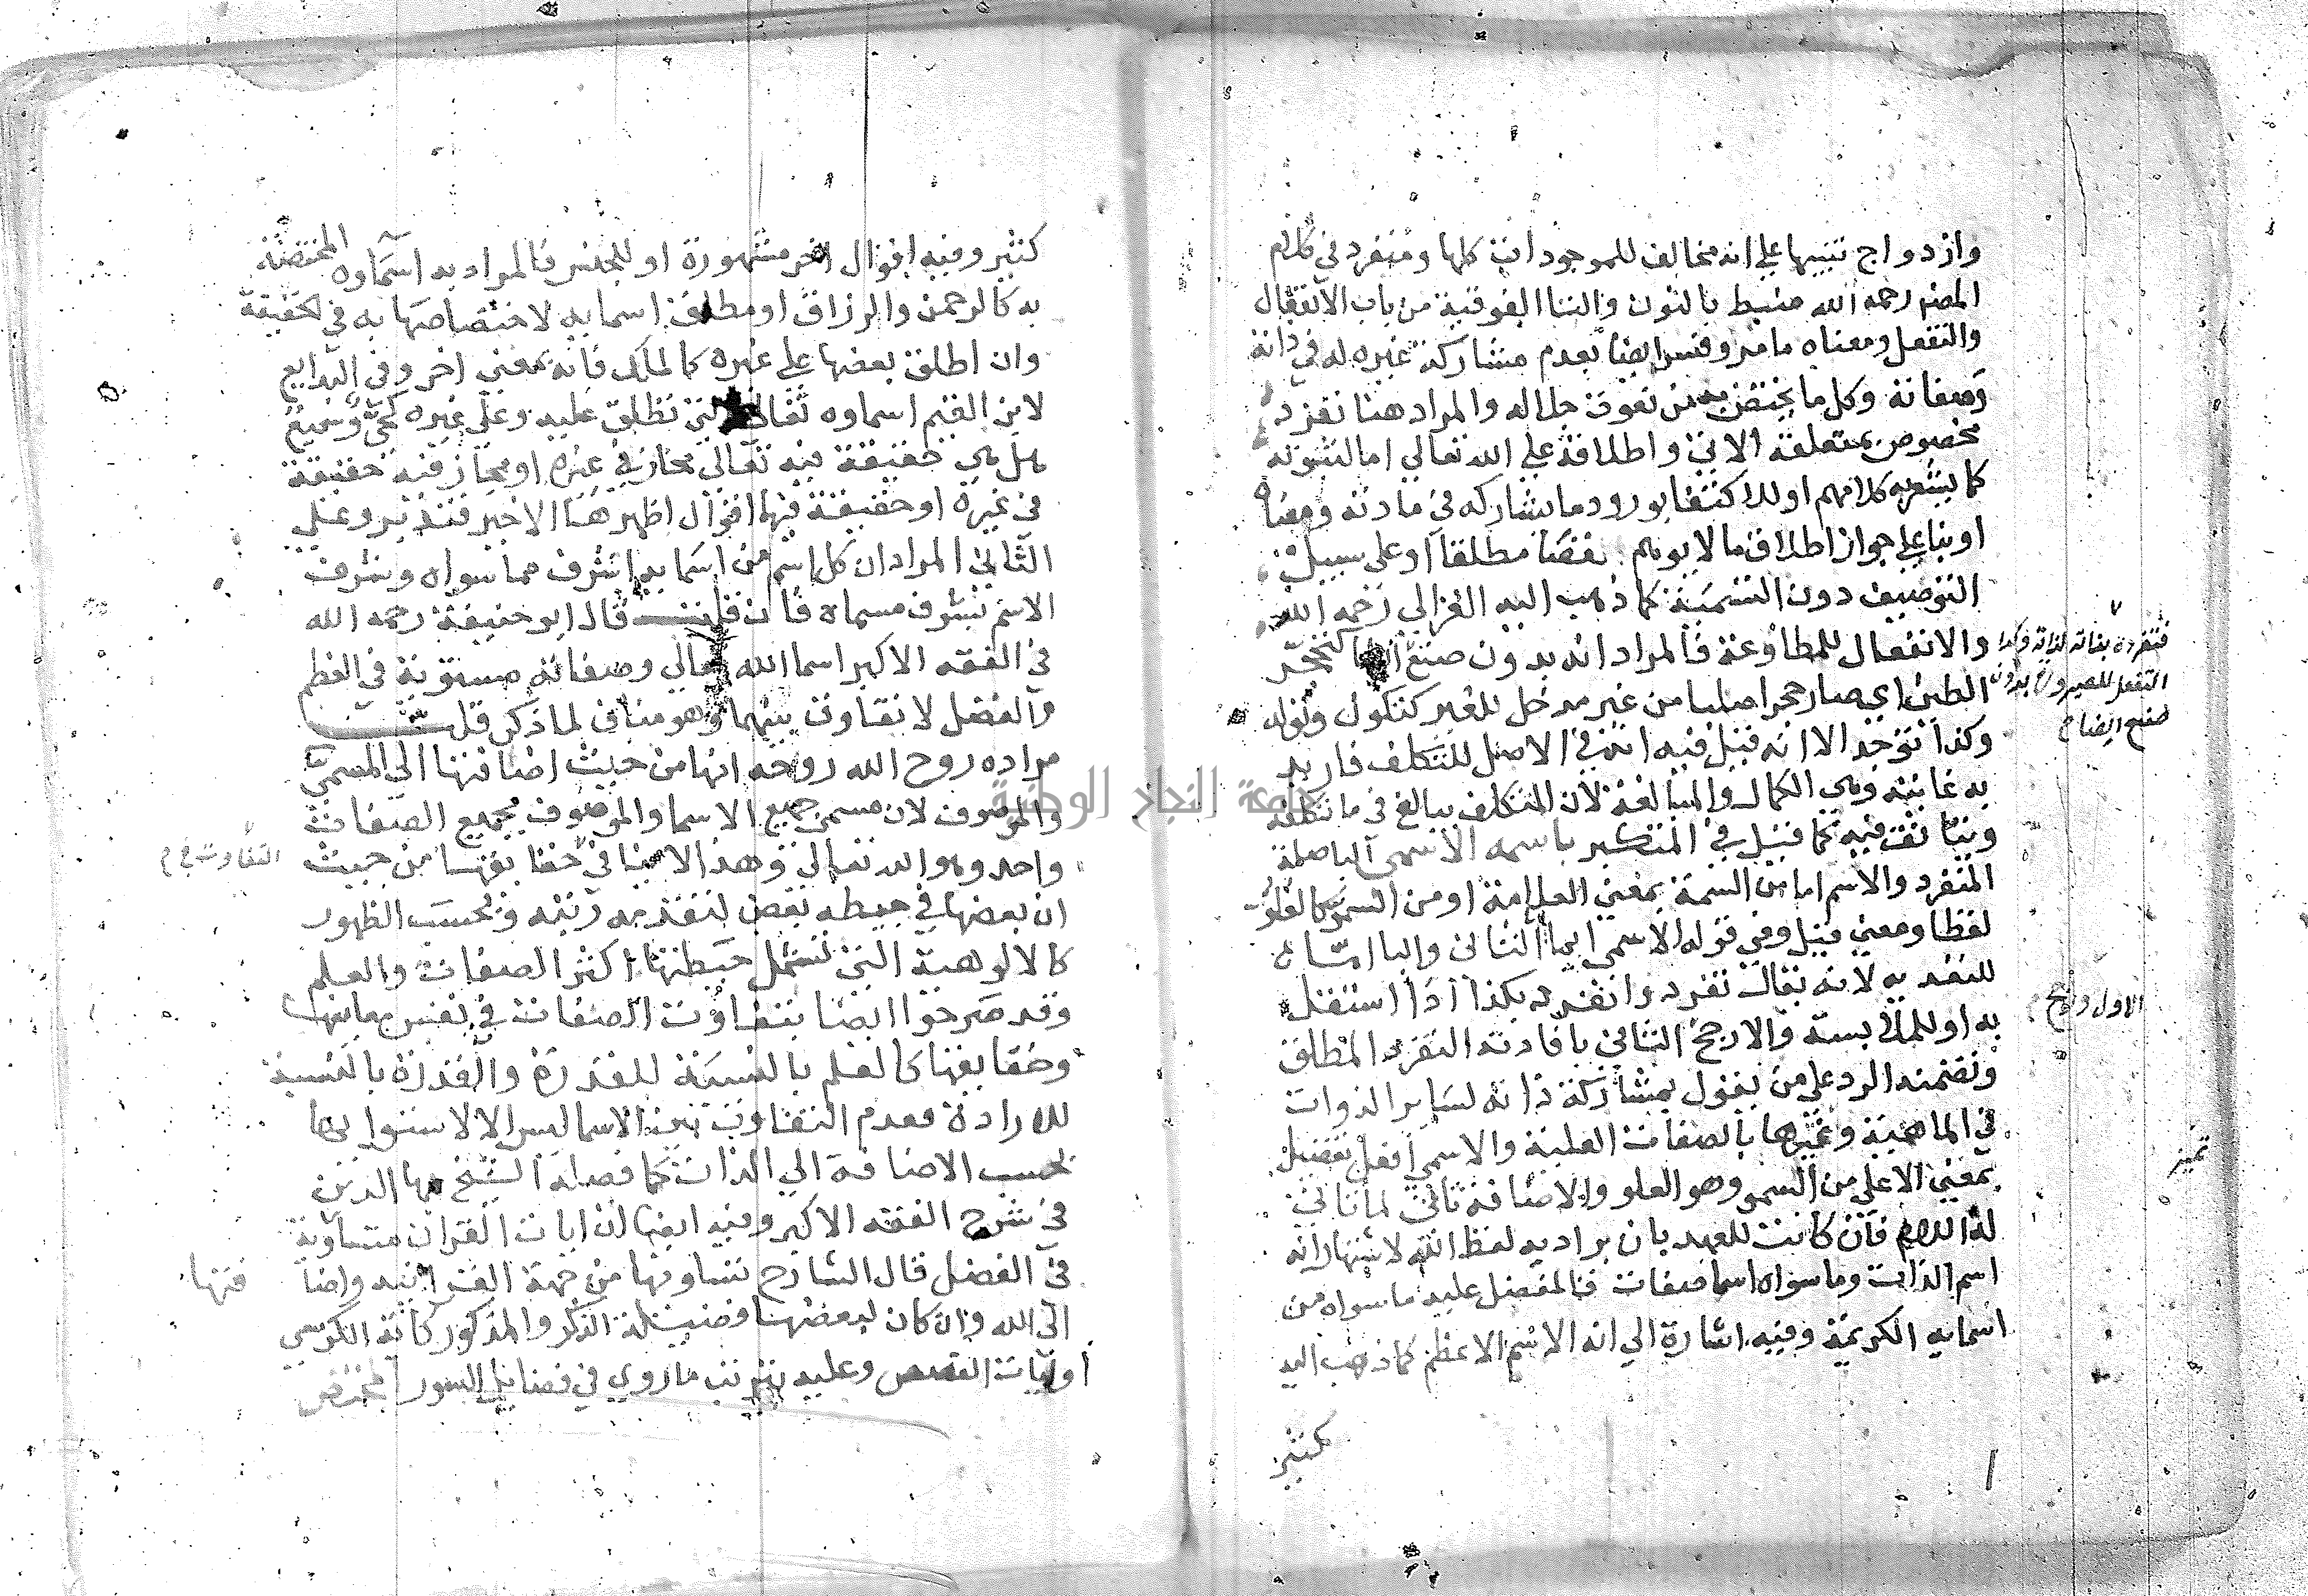 وازدواج تنبيها على انه مخالف للموجودات كلها ومنفرد في كلام
المصنف رحمه الله ضبط بالنون والتا الفوقية من باب الانفعال
والتفعل ومعناه ما مر وفسر ايضا بعدم مشاركة غيره له في ذاته
وصفاته وكل ما يختص به من نعوت جلاله والمراد هنا تفرد
مخصوص بمتعلقه الاتي واطلاقه على الله تعالى اما لثبوته
كما يشعر به كلامهم او للاكتفا بورود ما يشاركه في مادته ومعناه
او بنا على جواز اطلاق ما لا يوهم نقصا مطلقا او على سبيل
التوصيف دون التسمية كما ذهب اليه الغزالي رحمه الله
والانفعال للمطاوعة فالمراد انه بدون صنع كتحجر
الطين اي صار حجرا صلبا من غير مدخل للغير كتكون وتولد
وكذا توحد الا انه قيل فيه انه في الاصل للتكلف فاريد
به غايته وهي الكمال والمبالغة لان المتكلف يبالغ في ما تكلفه
ويتانق فيه كما قيل في المتكبر باسمه الاسمى البا صلة
المنفرد والاسم اما من السمة بمعنى العلامة او من السمو كالعلو
لفظا ومعنى قيل وفي قوله الاسمى ايما الثاني والبا اما
للتعدية لانه يقال تفرد وانفرد بكذا اذا استقل
به او للملابسة والارجح الثاني بافادته التفرد المطلق
وتضمنه الرد على من يقول بمشاركة ذاته لساير الذوات
في الماهية وغيرها بالصفات العلية والاسمى افعل تفضيل
بمعنى الاعلى من السمو وهو العلو والاضافة تاتي لما تاتي
له اللام فان كانت للعهد بان يراد به لفظ الله لاشتهار انه
اسم الذات وما سواه اسما صفات فالمفضل عليه ما سواه من
اسمايه الكريمة وفيه اشارة الى انه الاسم الاعظم كما ذهب اليه
كثير
التفعل للصيرورة بدون
صنع ايضا ح
الاول
تميز
كثير وفيه اقوال اخر مشهورة او للجنس فالمراد به اسماوه المختصة
به كالرحمن والرزاق او مطلق اسمايه لاختصاصها به في الحقيقة
وان اطلق بعضها على غيره كالملك فانه بمعنى اخر وفي البدايع
لابن القيم اسماوه تعالى التي تطلق عليه وعلى غيره كحي وسميع
هل هي حقيقة فيه تعالى مجاز في غيره او مجاز فيه حقيقة
في غيره او حقيقة فيهما اقوال اظهرها الاخير فتدبر وعلى
الثاني المراد ان كل اسم من اسمايه اشرف مما سواه وشرف
الاسم بشرف مسماه فان قلت قال ابو حنيفة رحمه الله
في الفقه الاكبر اسما الله تعالى وصفاته مستوية في العظم
والفضل لا تفاوت بينهما وهو مناف لما ذكر قلت
مراده روح الله روحه انها من حيث اضافتها الى المسمى
والموصوف لان مسمى جميع الاسما والموصوف بجميع الصفات
واحد وهو الله تعالى وهذا لا ينافي حقايقها من حيث
ان بعضها في حيطه بعض لتقدمه رتبه وبحسب الظهور
كالالوهية التي تشمل حيطتها اكثر الصفات والعلم
وقد صرحوا ايضا بتفاوت الصفات في نفس معانيها
وحقايقها كالعلم بالنسبة للقدرة والقدرة بالنسبة
للارادة فعدم التفاوت بين الاسما ليس الا لاستوايها
بحسب الاضافة الى الذات كما فصله الشيخ بها الدين
في شرح الفقه الاكبر وفيه ايضا ان ايات القران متساوية
في الفضل قال الشارح تساويها من جهة القرانيه واضا فتها
الى الله وان كان لبعضها فضيلة الذكر والمذكور كاية الكرسي
او ايات القصص وعليه يترتب ما روي في فضايل السور
التفاوت في